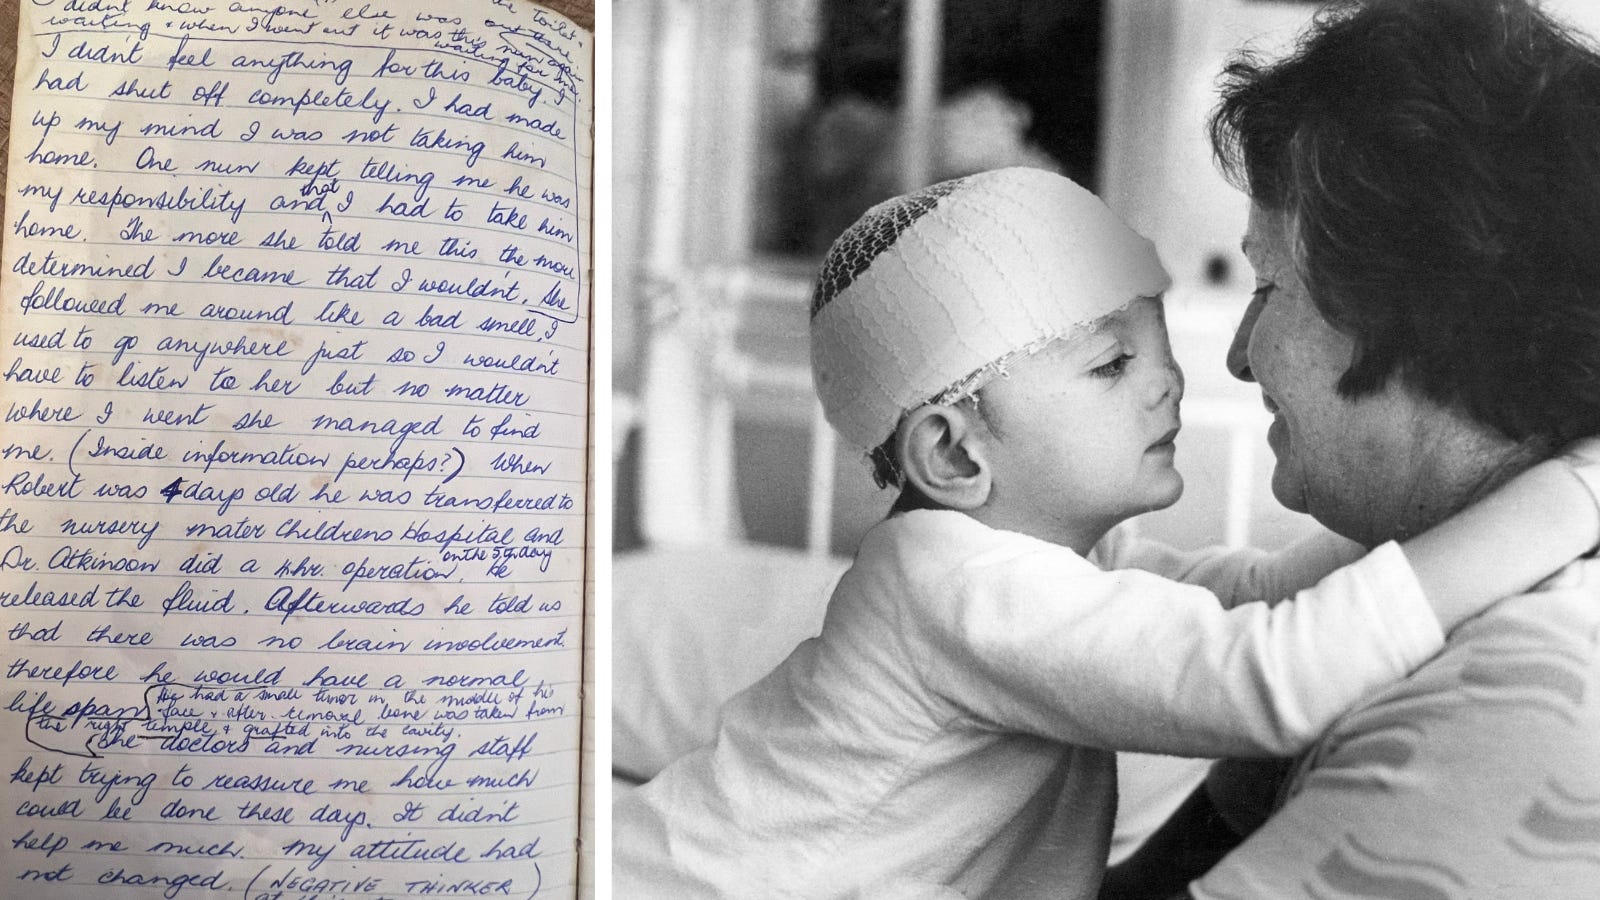 didn't know anyone else was out there
waiting & when I went out it was this nun again
waiting for me.
I didn't feel anything for this baby. I
had shut off completely. I had made
up my mind I was not taking him
home. One nun kept telling me he was
my responsibility and that I had to take him
home. The more she told me this the more
determined I became that I wouldn't. She
followed me around like a bad smell, I
used to go anywhere just so I wouldn't
have to listen to her but no matter
where I went she managed to find
me. (Inside information perhaps?) When
Robert was 4 days old he was transferred to
the nursery mater Childrens Hospital and
on the 5th day
Dr. Atkinson did a 4hr. operation, he
released the fluid. Afterwards he told us
that there was no brain involvement
therefore he would have a normal
life span
He had a small tumor in the middle of his
face & after removal bone was taken from
the right temple & grafted into the cavity.
The doctors and nursing staff
kept trying to reassure me how much
could be done these days. It didn't
help me much. My attitude had
not changed. (NEGATIVE THINKER)